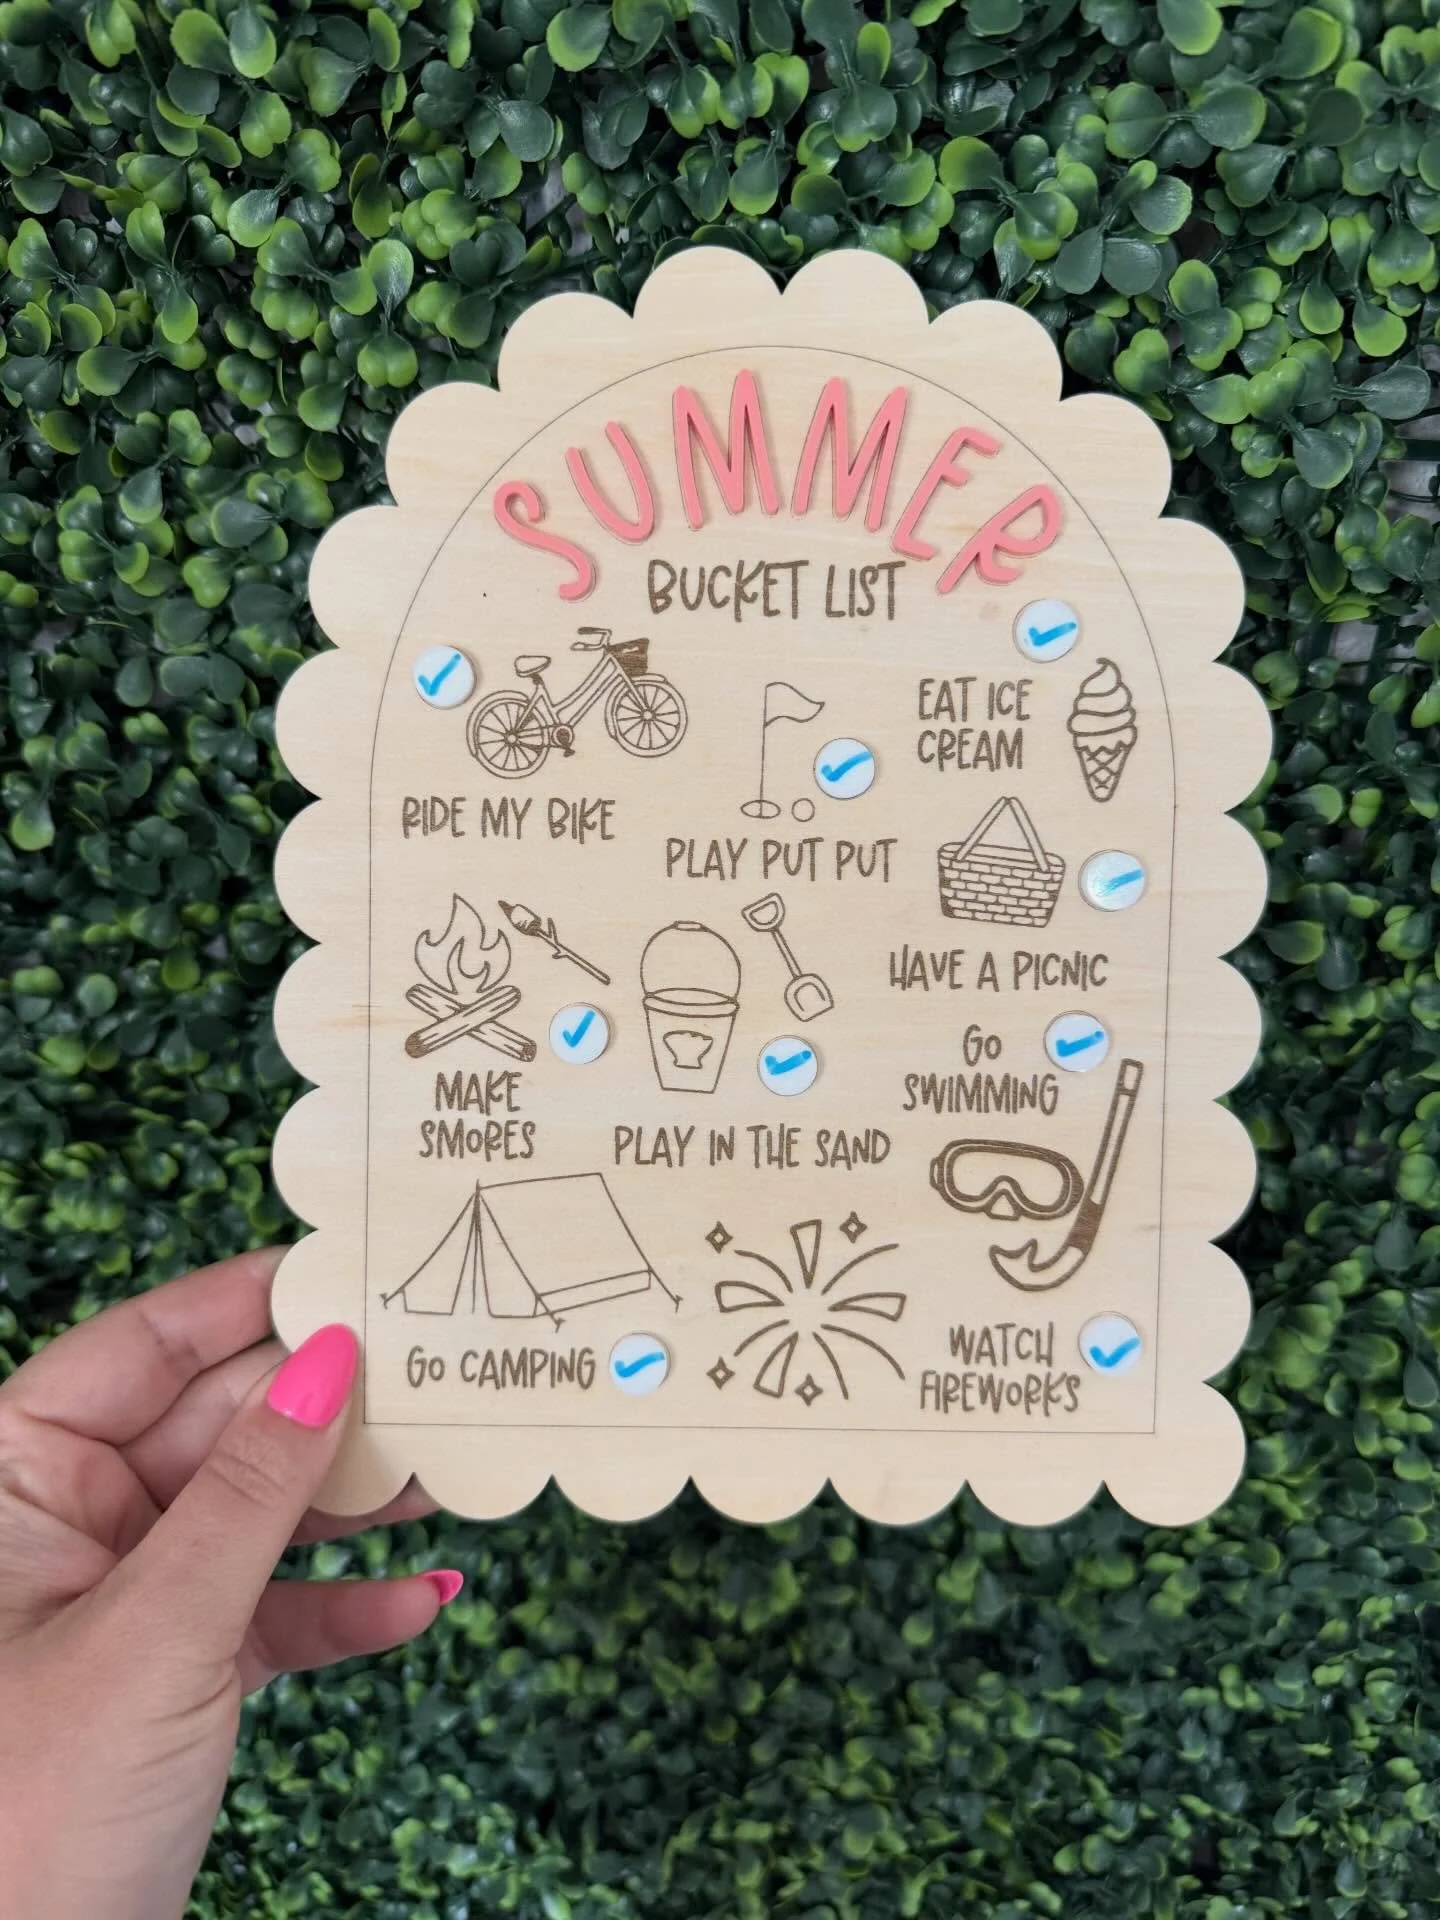 SUMMER
BUCKET LIST
RIDE MY BIKE
PLAY PUT PUT
EAT ICE
CREAM
HAVE A PICNIC
MAKE
SMORES
PLAY IN THE SAND
GO
SWIMMING
GO CAMPING
WATCH
FIREWORKS